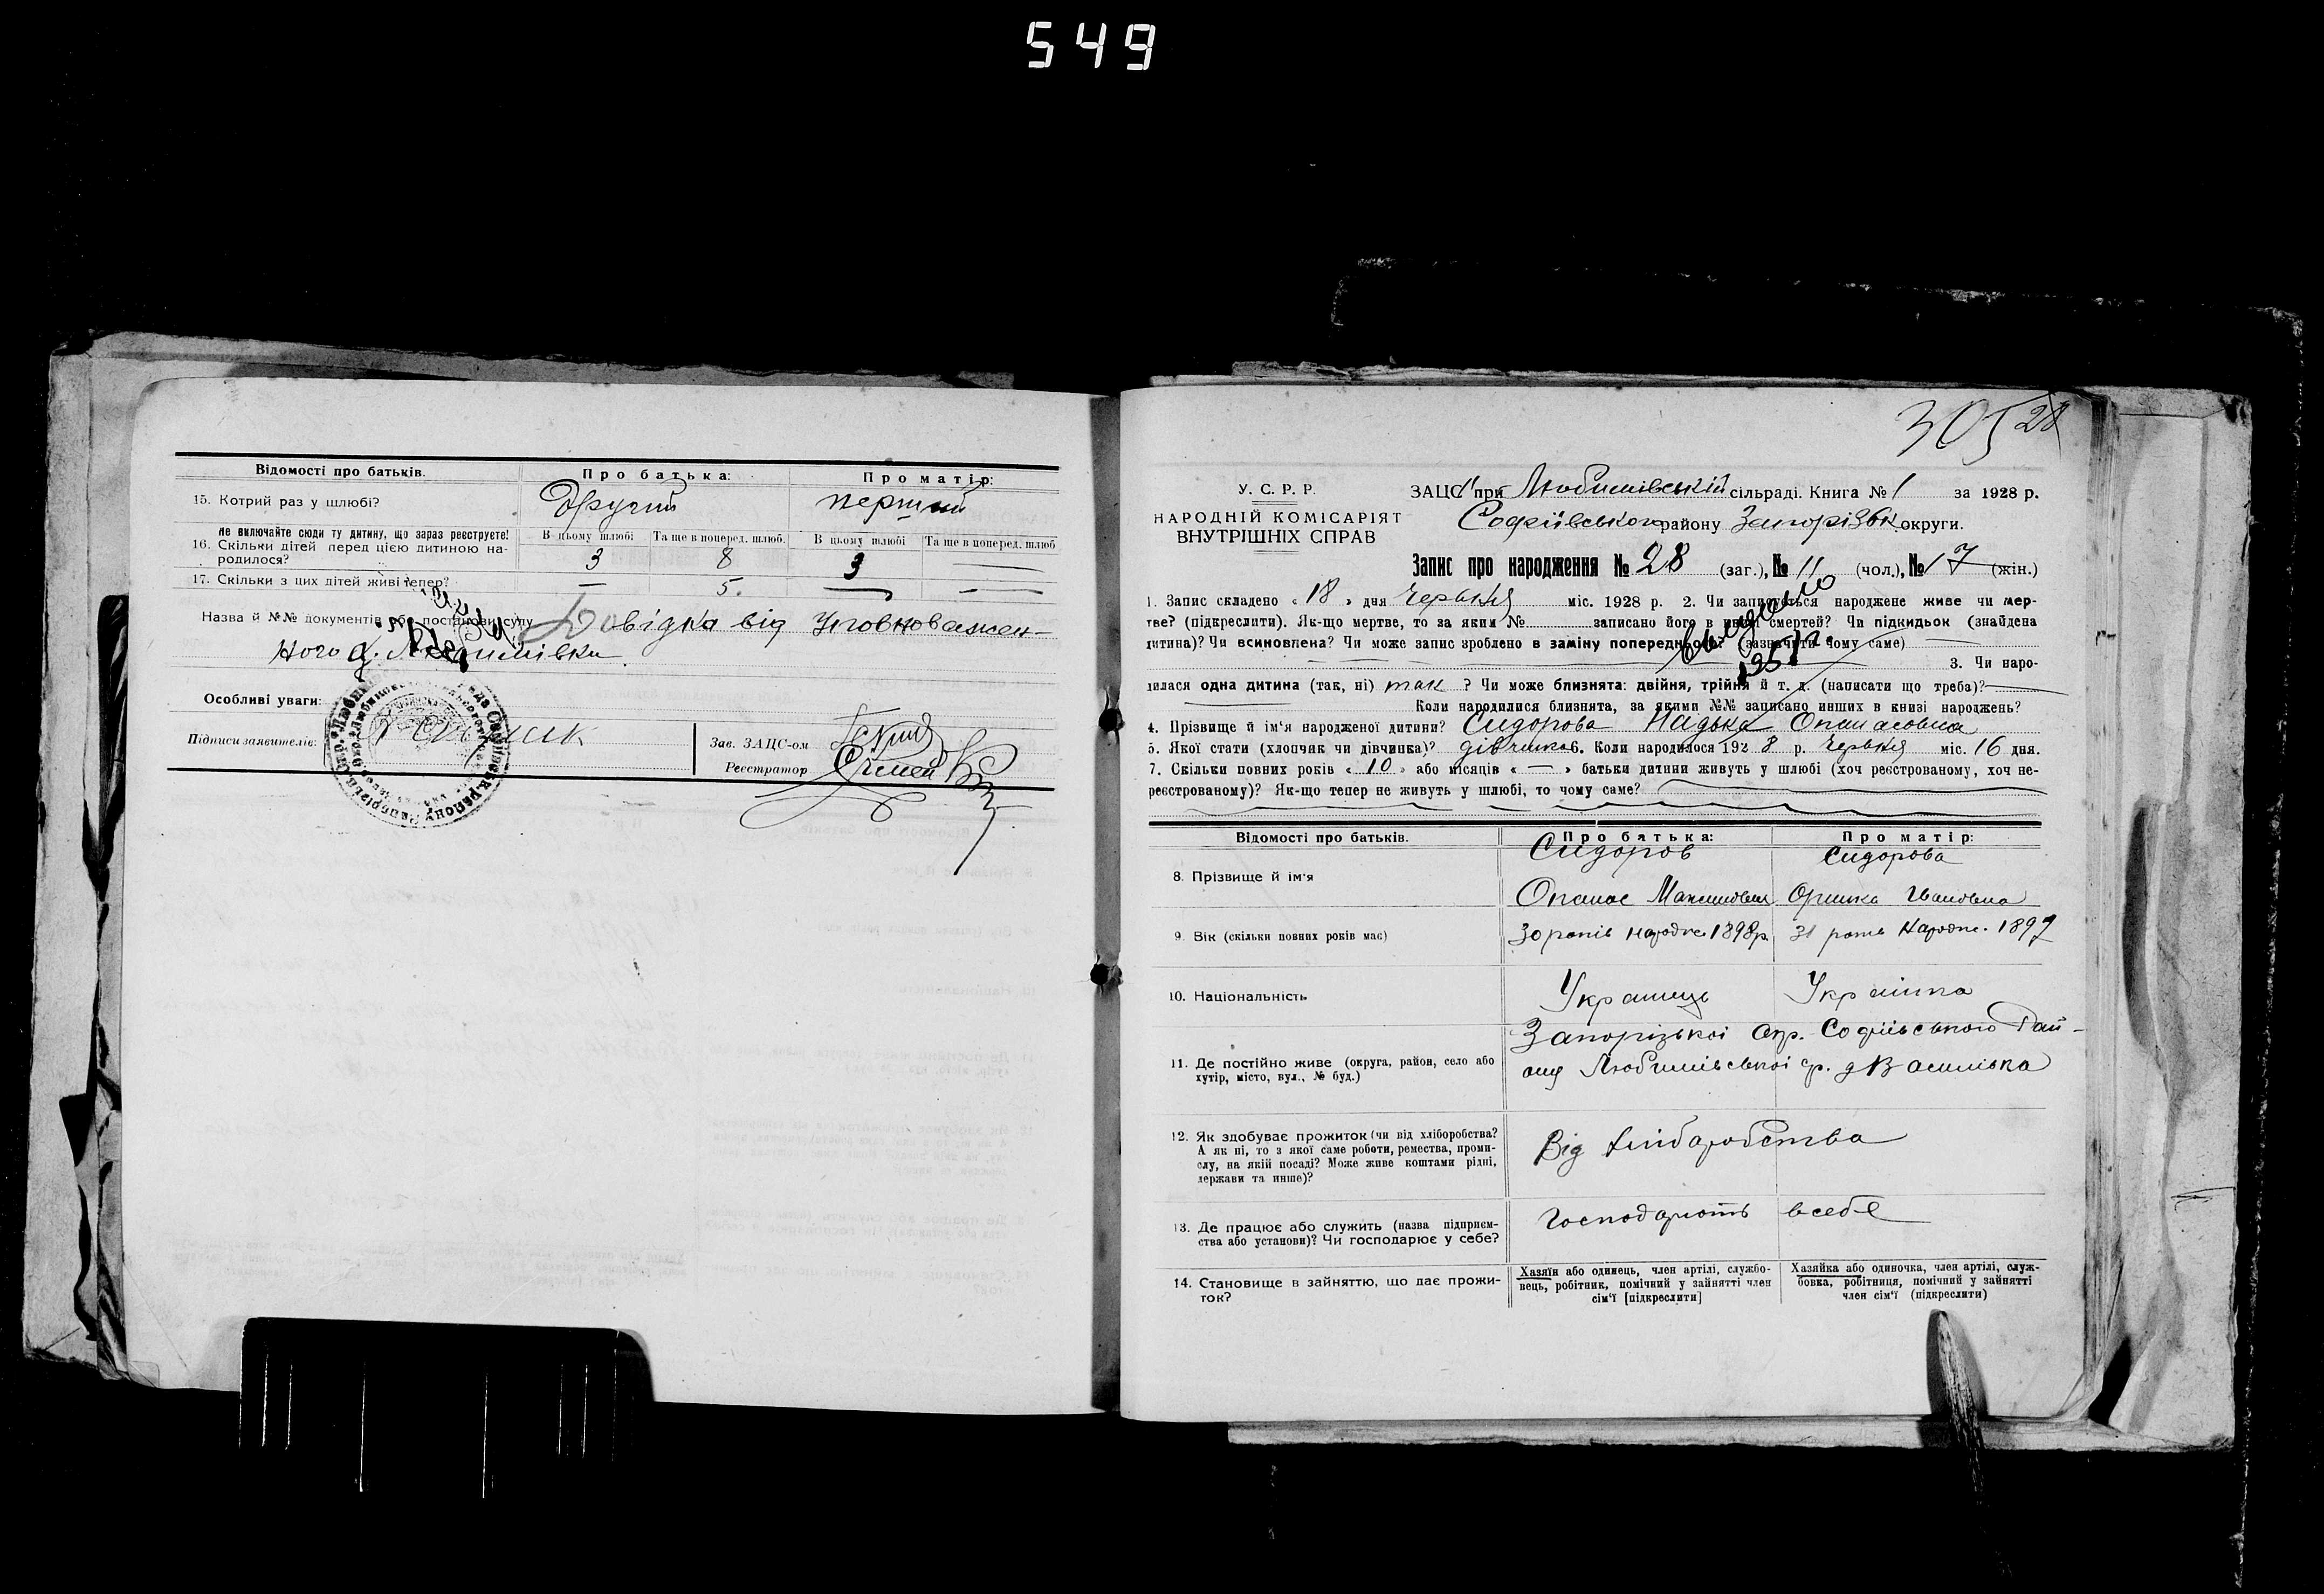 549
Відомості про батьків. Про батька: Про матір:
15. Котрий раз у шлюбі? Другий перший
Не включайте сюди ту дитину, що зараз реєструєте!
В цьому шлюбі Та ще в поперед. шлюб. В цьому шлюбі Та ще в поперед. шлюб
16. Скільки дітей перед цією дитиною на-
родилося? 3 8 3 —
17. Скільки з цих дітей живі тепер? — 5. — —
Назва й №№ документів або постанови суду Довідка від Уповноважен-
ного
Особливі уваги:
Підписи заявителів:
Зав. ЗАЦС-ом
Реєстратор
30528
У. С. Р. Р.
НАРОДНІЙ КОМІСАРІЯТ
ВНУТРІШНІХ СПРАВ
ЗАЦС при Любимівській сільраді. Книга № 1 за 1928 р.
Софіївського району Запорізьк. округи.
Запис про народження № 28 (заг.), № 11 (чол.), № 17 (жін.)
1. Запис складено « 18 » дня червня міс. 1928 р. 2. Чи записується народжене живе чи мер-
тве? (підкреслити). Як-що мертве, то за яким № записано його в книзі смертей? Чи підкидьок (знайдена
дитина)? Чи всиновлена? Чи може запис зроблено в заміну попереднього? (зазначити чому саме) —
3. Чи наро-
дилася одна дитина (так, ні) так ? Чи може близнята: двійня, трійня й т. д. (написати що треба)? —
Коли народилися близнята, за якими №№ записано инших в книзі народжень?
4. Прізвище й ім'я народженої дитини? Сидорова Надька Опанасовна
5. Якої статі (хлопчик чи дівчинка)? дівчинка 6. Коли народилося 1928 р. червня міс. 16 дня.
7. Скільки повних років « 10 » або місяців « — » батьки дитини живуть у шлюбі (хоч реєстрованому, хоч не-
реєстрованому)? Як-що тепер не живуть у шлюбі, то чому саме?
Відомості про батьків. Про батька: Про матір:
Сидоров Сидорова
8. Прізвище й ім'я
Опанас Максимович Оришка Івановна
9. Вік (скільки повних років має) 30 років народж. 1898 р. 31 років Народж. 1897
10. Національність Українець Українка
Запорізької окр. Софіївського Рай-
11. Де постійно живе (округа, район, село або
хутір, місто, вул., № буд.)
ону Любимівської ср. д Василівка
12. Як здобуває прожиток (чи від хліборобства?
А як ні, то з якої саме роботи, ремества, проми-
слу, на якій посаді? Може живе коштами рідні,
держави та инше)?
Від хліборобства
13. Де працює або служить (назва підприєм-
ства або установи)? Чи господарює у себе?
Господарють всебе
14. Становище в зайняттю, що дає прожи-
ток?
Хазяїн або одинець, член артілі, службо-
вець, робітник, помічний у зайнятті член
сім'ї [підкреслити]
Хазяйка або одиночка, член артілі, служ-
бовка, робітниця, помічний у зайнятті
член сім'ї (підкреслити)